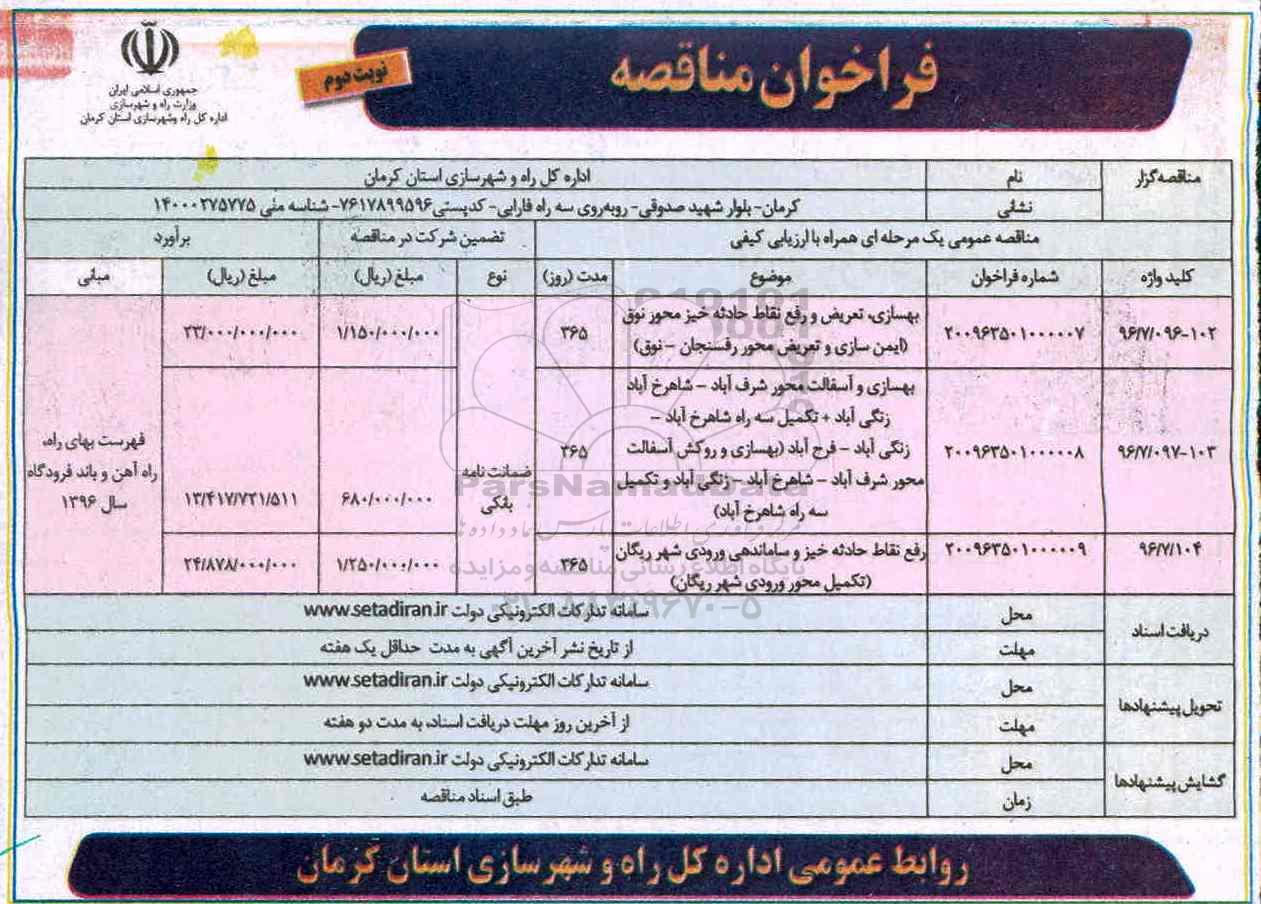 فراخوان مناقصه
نوبت دوم
جمهوری اسلامی ایران
وزارت راه و شهرسازی
اداره کل راه وشهرسازی استان کرمان
مناقصه‌گزار نام اداره کل راه و شهرسازی استان کرمان
نشانی کرمان- بلوار شهید صدوقی- روبه‌روی سه راه فارابی- کدپستی۷۶۱۷۸۹۹۵۹۶- شناسه ملی ۱۴۰۰۰۲۷۵۷۷۵
مناقصه عمومی یک مرحله ای همراه با ارزیابی کیفی تضمین شرکت در مناقصه برآورد
کلید واژه شماره فراخوان موضوع مدت (روز) نوع مبلغ (ریال) مبلغ (ریال) مبانی
۹۶/۷/۰۹۶-۱۰۲ ۲۰۰۹۶۳۵۰۱۰۰۰۰۰۷ بهسازی، تعریض و رفع نقاط حادثه خیز محور نوق
(ایمن سازی و تعریض محور رفسنجان - نوق) ۳۶۵ ۱/۱۵۰/۰۰۰/۰۰۰ ۲۳/۰۰۰/۰۰۰/۰۰۰
۹۶/۷/۰۹۷-۱۰۳ ۲۰۰۹۶۳۵۰۱۰۰۰۰۰۸ بهسازی و آسفالت محور شرف آباد - شاهرخ آباد
زنگی آباد + تکمیل سه راه شاهرخ آباد -
زنگی آباد - فرح آباد (بهسازی و روکش آسفالت
محور شرف آباد - شاهرخ آباد - زنگی آباد و تکمیل
سه راه شاهرخ آباد) ۳۶۵ ۶۸۰/۰۰۰/۰۰۰ ۱۳/۴۱۷/۷۲۱/۵۱۱
ضمانت نامه
بانکی
فهرست بهای راه،
راه آهن و باند فرودگاه
سال ۱۳۹۶
۹۶/۷/۱۰۴ ۲۰۰۹۶۳۵۰۱۰۰۰۰۰۹ رفع نقاط حادثه خیز و ساماندهی ورودی شهر ریگان
(تکمیل محور ورودی شهر ریگان) ۳۶۵ ۱/۲۵۰/۰۰۰/۰۰۰ ۲۴/۸۷۸/۰۰۰/۰۰۰
دریافت اسناد محل سامانه تدارکات الکترونیکی دولت www.setadiran.ir
مهلت از تاریخ نشر آخرین آگهی به مدت حداقل یک هفته
تحویل پیشنهادها محل سامانه تدارکات الکترونیکی دولت www.setadiran.ir
مهلت از آخرین روز مهلت دریافت اسناد، به مدت دو هفته
گشایش پیشنهادها محل سامانه تدارکات الکترونیکی دولت www.setadiran.ir
زمان طبق اسناد مناقصه
روابط عمومی اداره کل راه و شهرسازی استان کرمان
ParsNamadData
پایگاه اطلاع رسانی مناقصه و مزایده